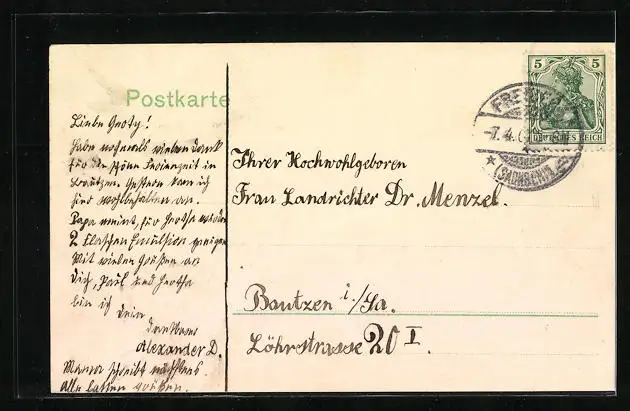 Postkarte
Liebe Grety!
Habe nochmals vielen Dank
für die schöne Ferienzeit in
Bautzen. Gestern kam ich
hier wohlbehalten an.
Papa meint, für Gretha würden
2 Flaschen Emulsion genügen
Mit vielen Grüßen an
Dich, Paul und Gretha
bin ich Dein
dankbarer
Alexander D.
Mama schreibt nächstens.
Alle lassen grüßen.
5 5
DEUTSCHES REICH
FREIB
-7.4.0
(SACHSEN)
Ihrer Hochwohlgeboren
Frau Landrichter Dr. Menzel.
Bautzen i./Sa.
Löhrstrasse 20 I.